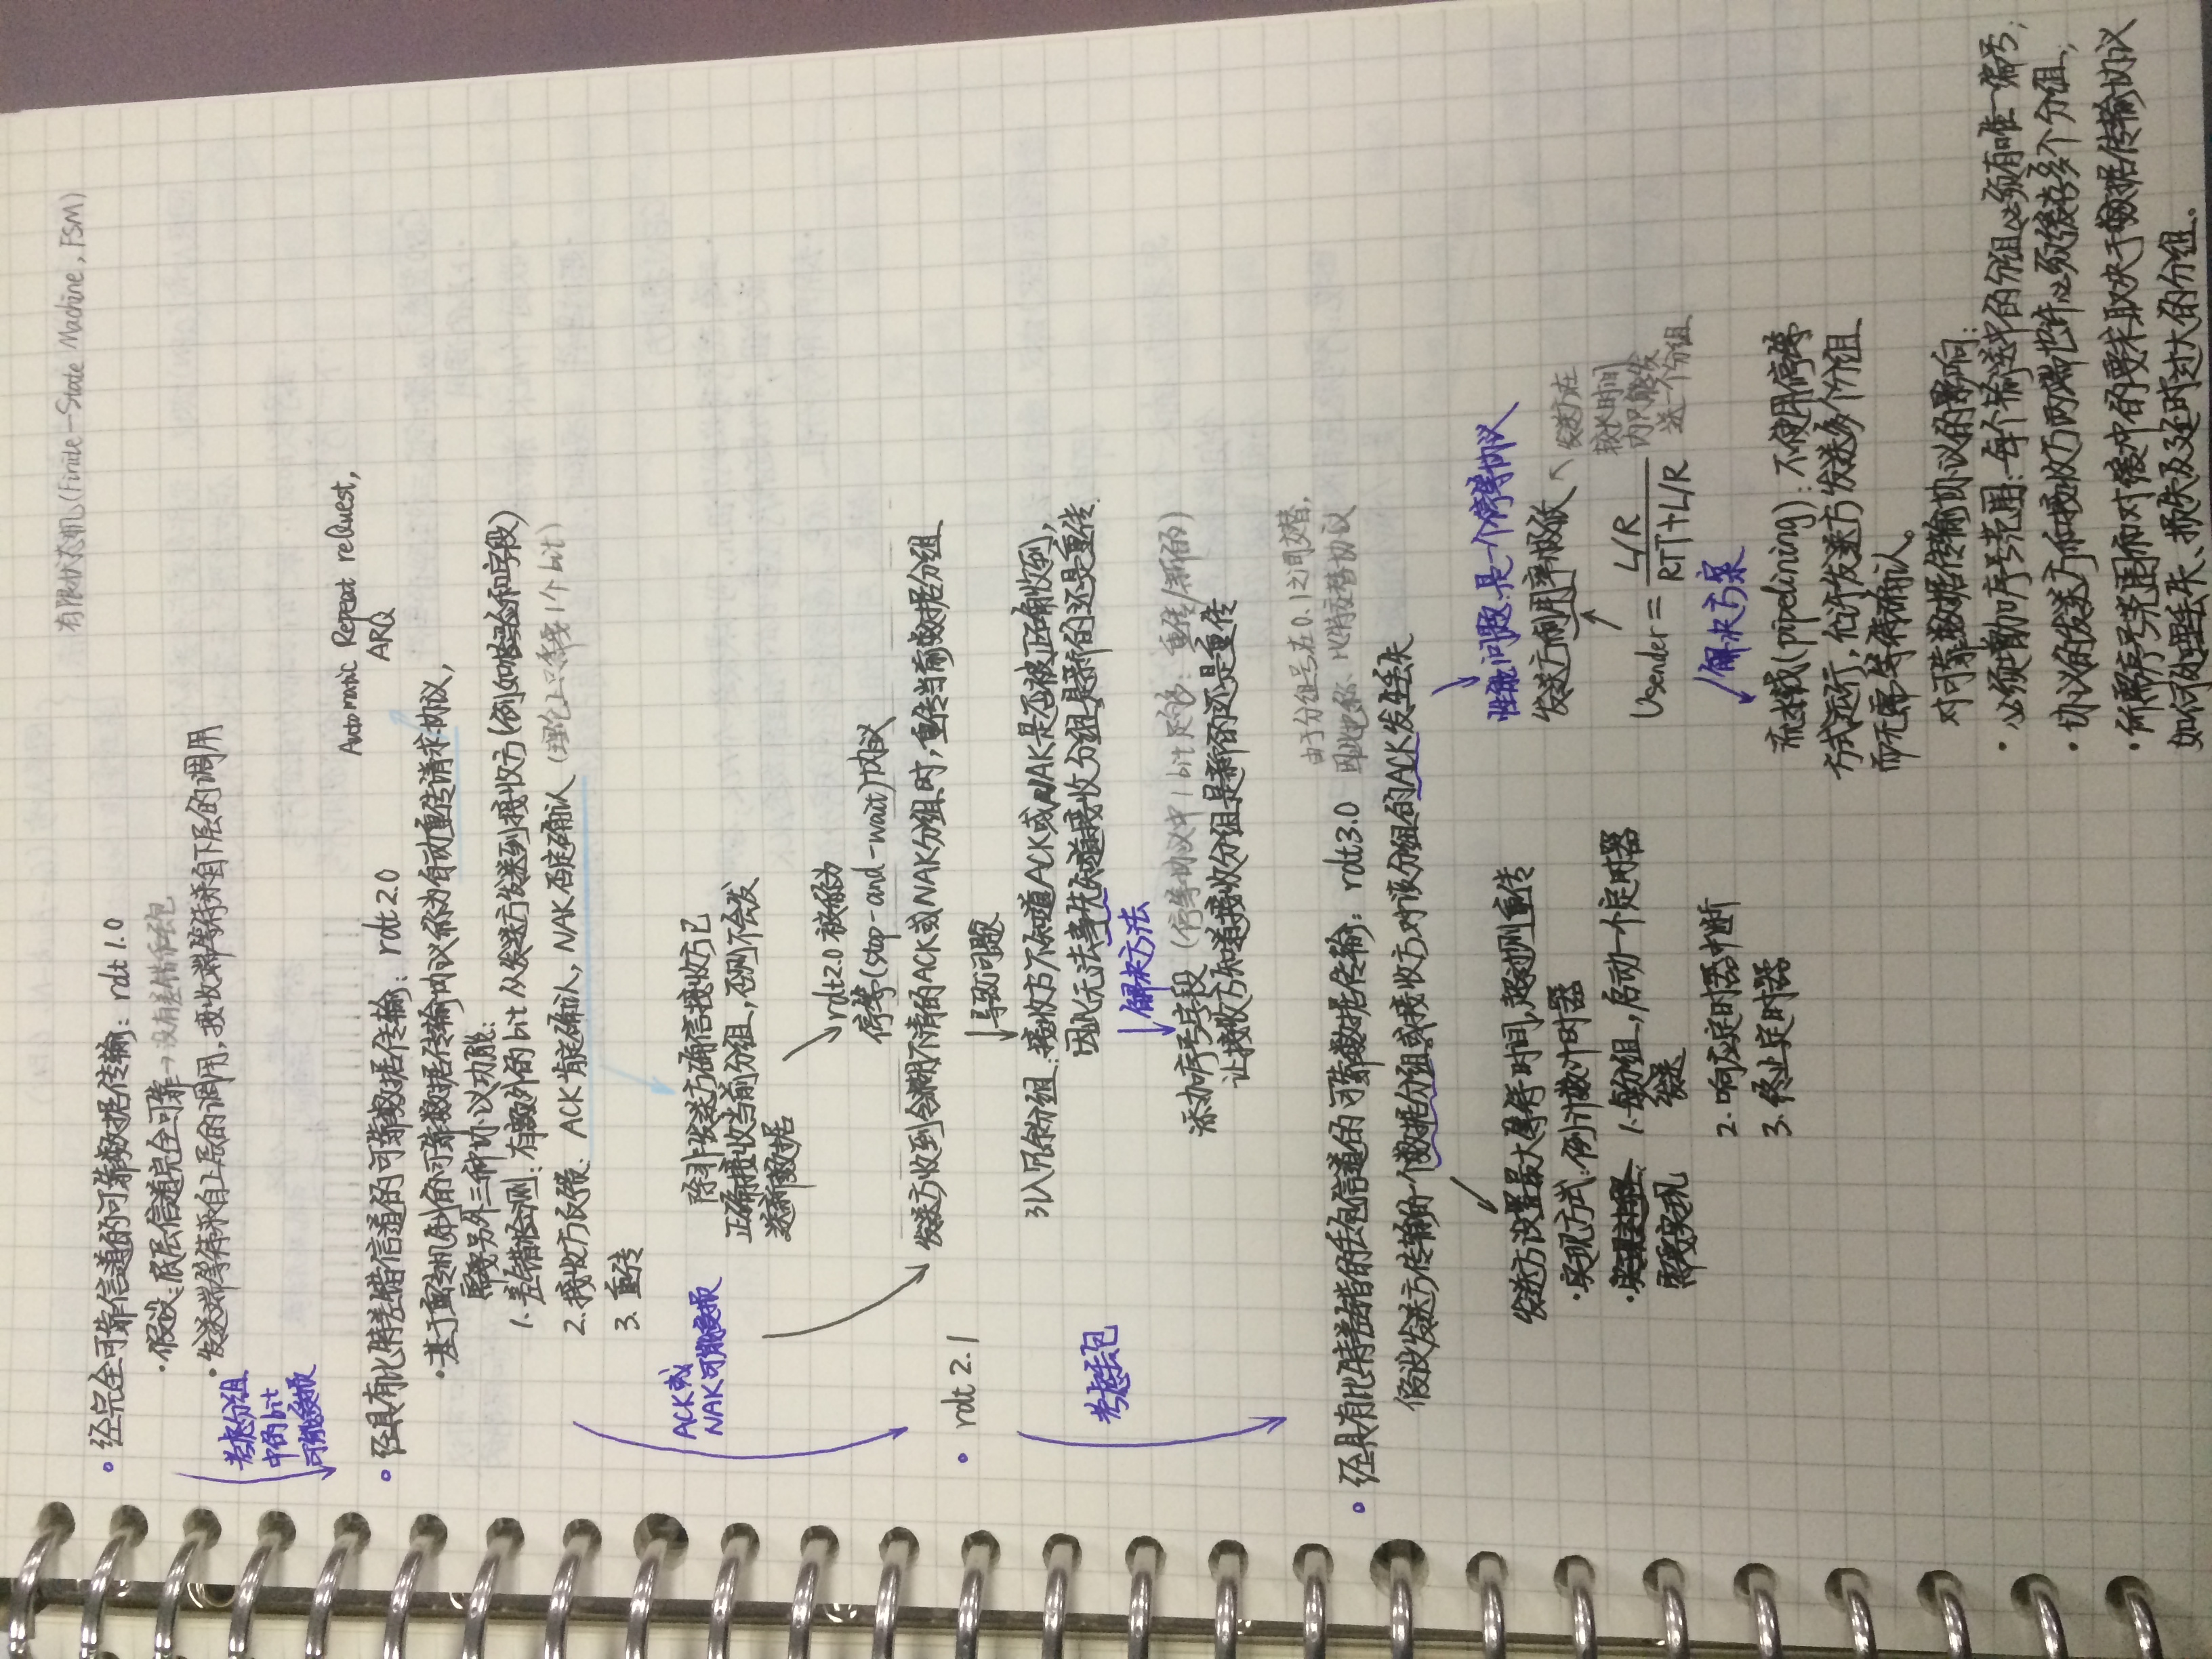 有限状态机(Finite-State Machine, FSM)
经完全可靠信道的可靠数据传输: rdt 1.0
·假设:底层信道完全可靠→没有差错和丢包
·发送端等待来自上层的调用,接收端等待来自下层的调用
考虑分组
中的bit
可能受损
Automatic Repeat reQuest,
ARQ
经具有比特差错信道的可靠数据传输: rdt2.0
·基于重传机制的可靠数据传输协议称为自动重传请求协议,
需要另外三种协议功能:
1. 差错检测:有额外的bit从发送方发送到接收方(例如检验和字段)
2. 接收方反馈. ACK肯定确认, NAK否定确认 (理论上只需要1个bit)
3. 重传
ACK或
NAK可能受损
除非发送方确信接收方已
正确接收当前分组,否则不会发
送新数据
rdt2.0 被称为
停等(stop-and-wait)协议
发送方收到含糊不清的ACK或NAK分组时,重传当前数据分组
rdt 2.1
导致问题
引入冗余分组:接收方不知道ACK或NAK是否被正确收到,
因此无法事先知道接收分组是新的还是重传.
考虑丢包
解决方法
添加序号字段 (停等协议中1bit足够: 重传/新的)
让接收方知道接收分组是新的还是重传
由于分组号在0.1之间交替,
因此也称、比特交替协议
经具有比特差错的丢包信道的可靠数据传输: rdt3.0
假设发送方传输的一个数据分组或接收方对该分组的ACK发生丢失
发送方设置最大等待时间,超过则重传
·实现方式:倒计数计时器
需要实现
1. 每发送分组,启动一个定时器
2. 响应定时器中断
3. 终止定时器
性能问题:是一个停等协议
发送方利用率极低
发送方在
较长时间
内只能发
送一个分组
Usender = L/R
RTT+L/R
解决方案
流水线(pipelining): 不使用停等
方式运行,允许发送方发送多个分组
而无需等待确认。
对可靠数据传输协议的影响:
·必须增加序号范围:每个输送中的分组必须有唯一编号;
·协议的发送方和接收方两端也许必须缓存多个分组;
·所需序号范围和对缓冲的要求取决于数据传输协议
如何处理丢失、损失及延时过大的分组。